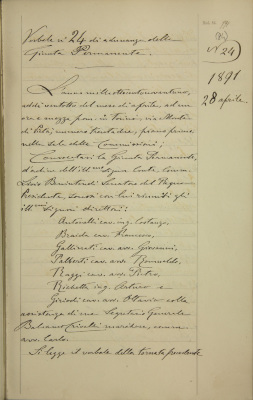 Verbale n° 24 di adunanza della
Giunta Permanente.
N 24
1891
28 aprile
L'anno milleottocentonovantuno,
addì ventotto del mese di aprile, ad una
ora e mezza pom. in Torino, via
numero piano primo
nella sala delle Commissioni;
Convocatasi la Giunta Permanente,
d'ordine dell'ill.mo signor Conte Comm.
Luigi Senatore del Regno
Presidente, sonosi con lui riuniti gli
ill.mi signori direttori:
ing. Costanzo,
Braida cav. Francesco,
Gallinati cav. avv. Giovanni,
Palberti cav. avv. Romualdo,
Raggi cav. avv. Pietro,
ing. Arturo e
Girodi cav. avv. Ottavio colla
assistenza di me Segretario Generale
Balsamo Crivelli
avv. Carlo.
Si legge il verbale della tornata precedente